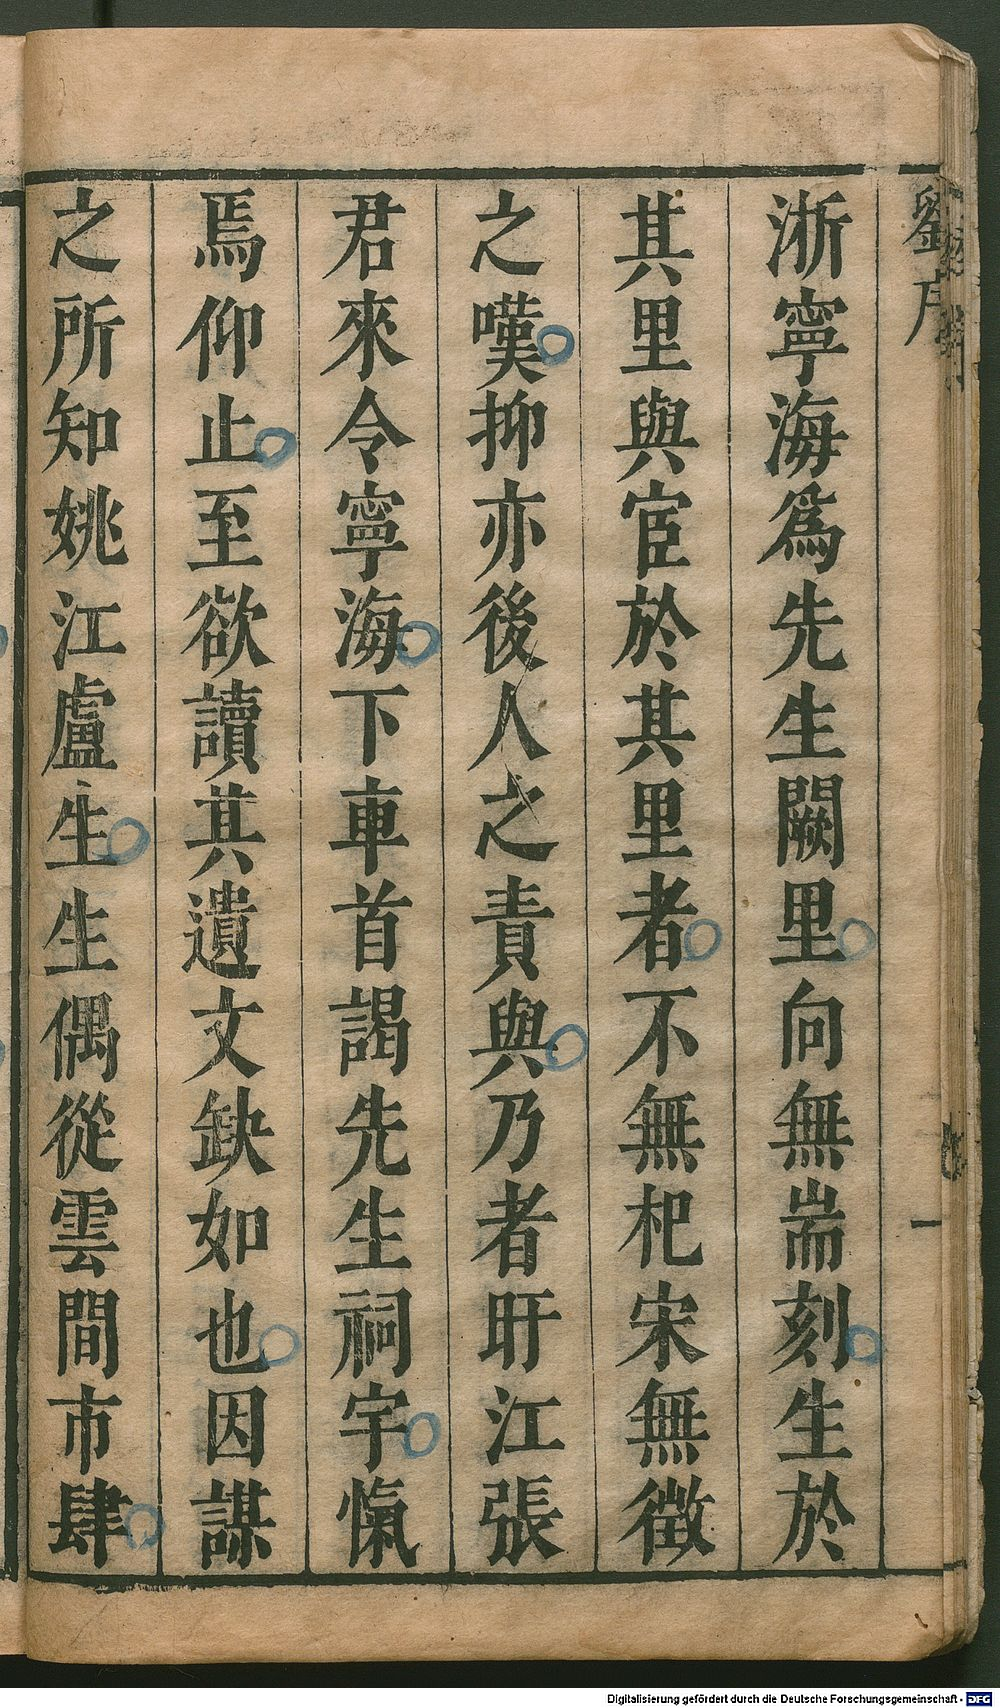 劉序
一
浙寧海爲先生闕里向無耑刻生於
其里與宦於其里者不無杞宋無徵
之嘆抑亦後人之責與乃者旴江張
君來令寧海下車首謁先生祠宇愾
焉仰止至欲讀其遺文缺如也因謀
之所知姚江盧生生偶從雲間市肆
Digitalisierung gefördert durch die Deutsche Forschungsgemeinschaft - DFG